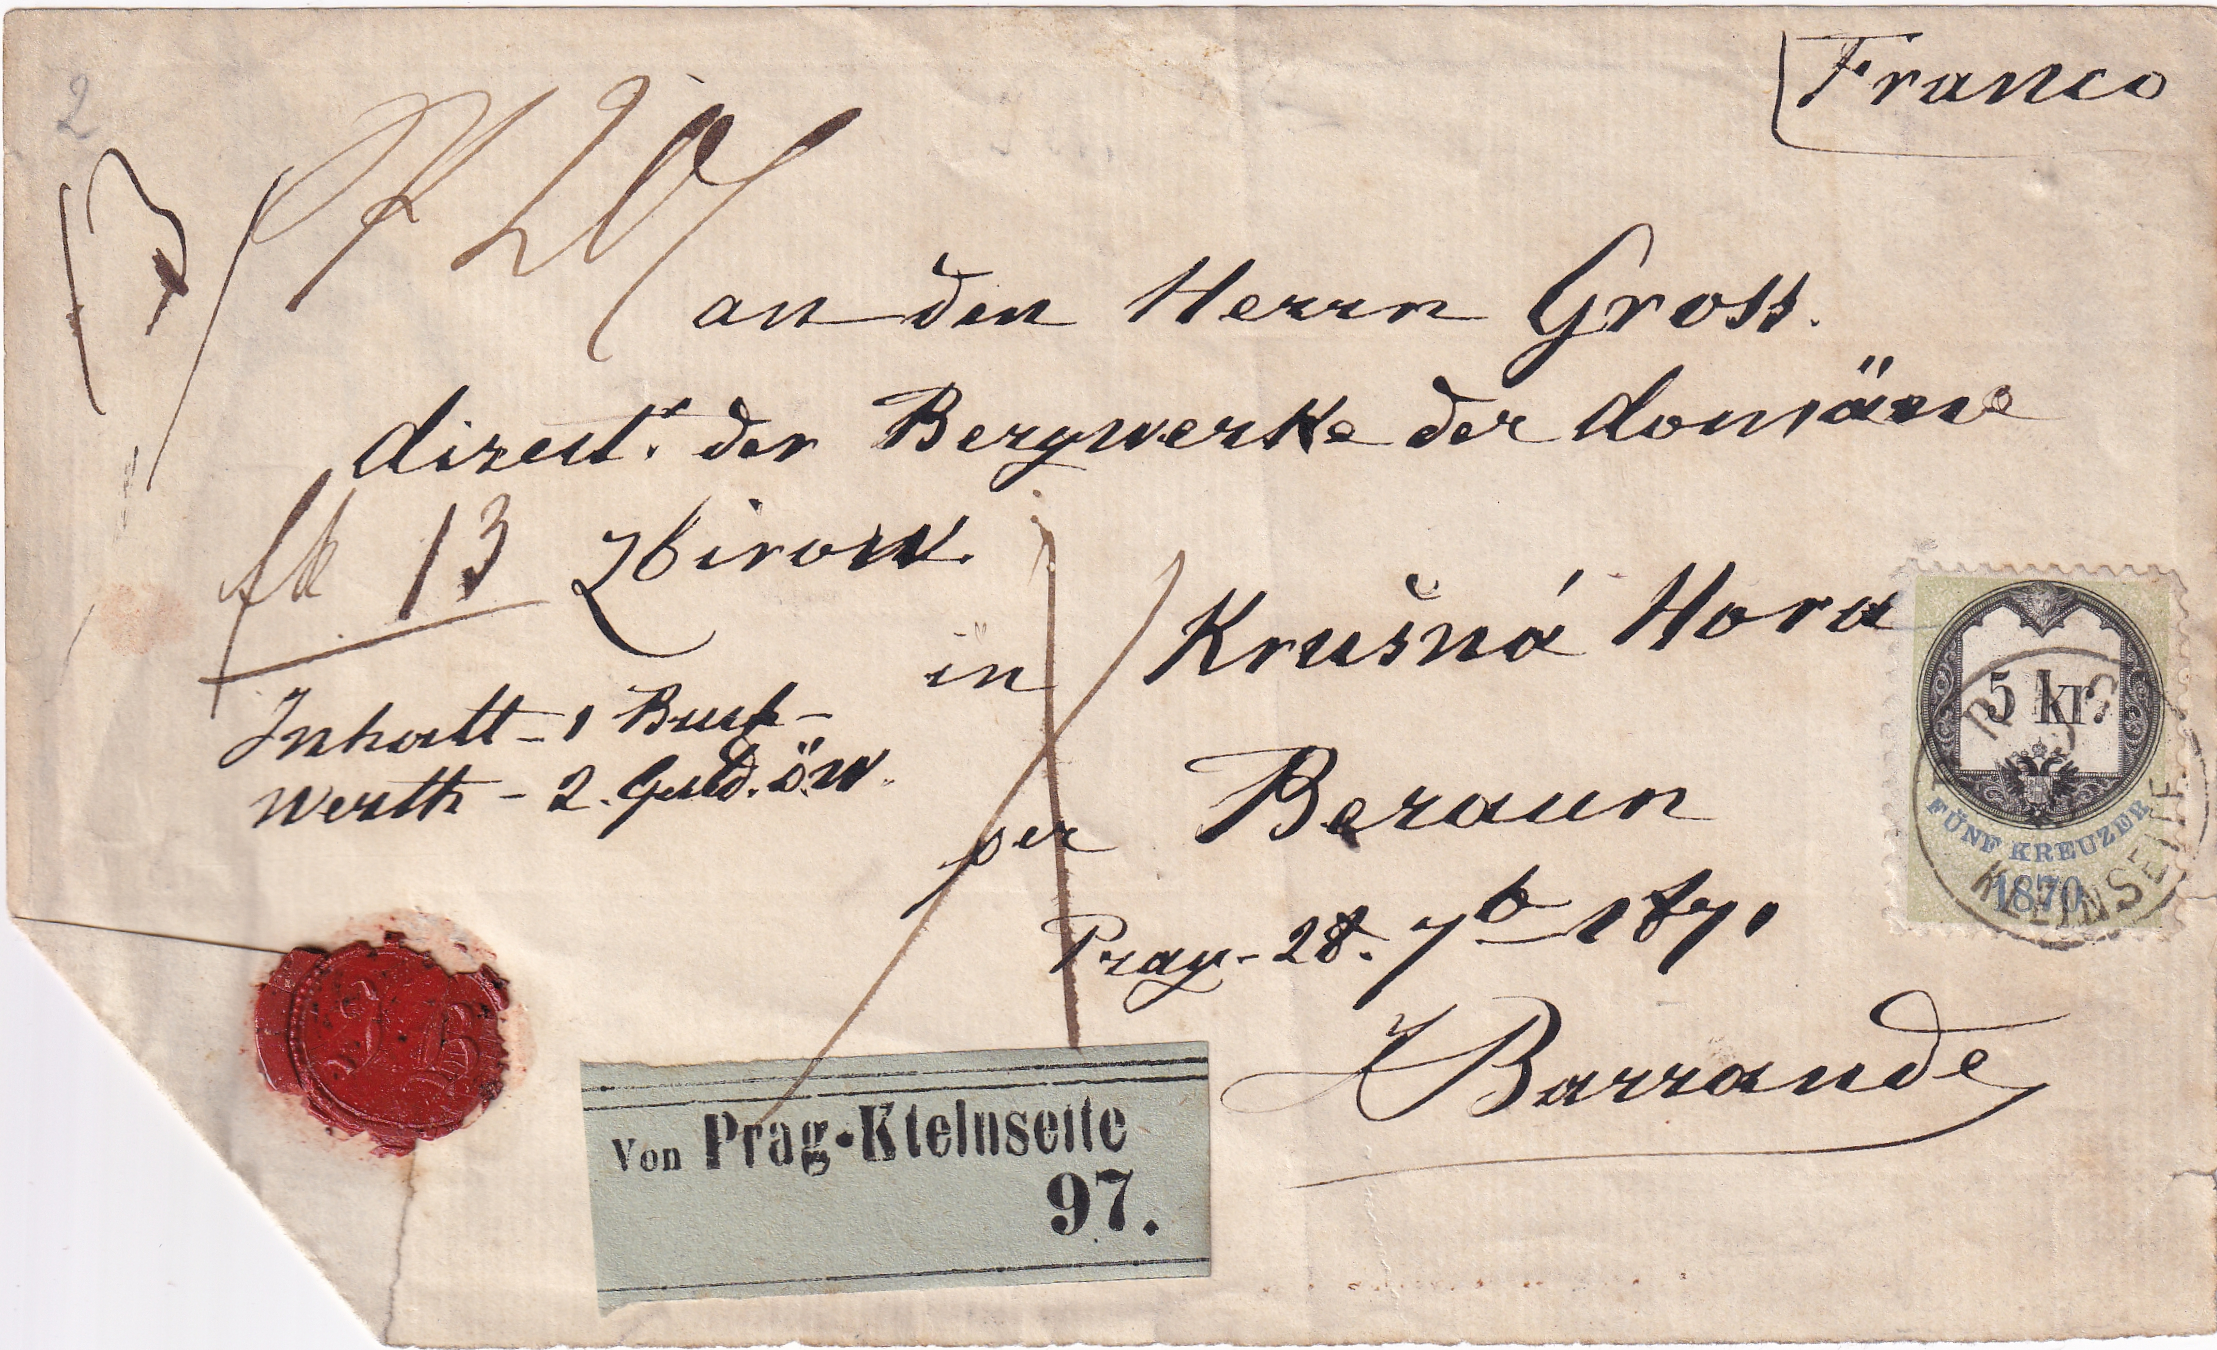 2
Franco
an den Herrn Gross.
direct. der Bergwerke der domäne
13 Zbirow.
in Krušná Hora
Inhalt - 1 Buch -
Werth - 2. Guld. ö.W.
per Beraun
Prag - 28. 7b 1871
J Barrande
5 kr.
FÜNF KREUZER
1870
PRAG
KLEINSEITE
Von Prag-Kleinseite
97.